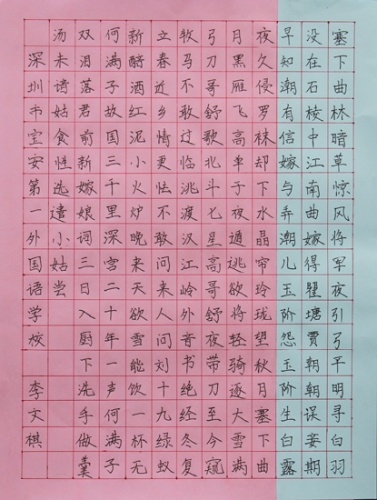 塞下曲林暗草惊风将军夜引弓平明寻白羽
没在石棱中江南曲嫁得瞿塘贾朝朝误妾期
早知潮有信嫁与弄潮儿玉阶怨玉阶生白露
夜久侵罗袜却下水晶帘玲珑望秋月塞下曲
月黑雁飞高单于夜遁逃欲将轻骑逐大雪满
弓刀哥舒歌北斗七星高哥舒夜带刀至今窥
牧马不敢过临洮渡汉江岭外音书绝经冬复
立春近乡情更怯不敢问来人问刘十九绿蚁
新醅酒红泥小火炉晚来天欲雪能饮一杯无
何满子故国三千里深宫二十年一声何满子
双泪落君前新嫁娘词三日入厨下洗手做羹
汤未谙姑食性先遣小姑尝
深圳市宝安第一外国语学校 李文棋